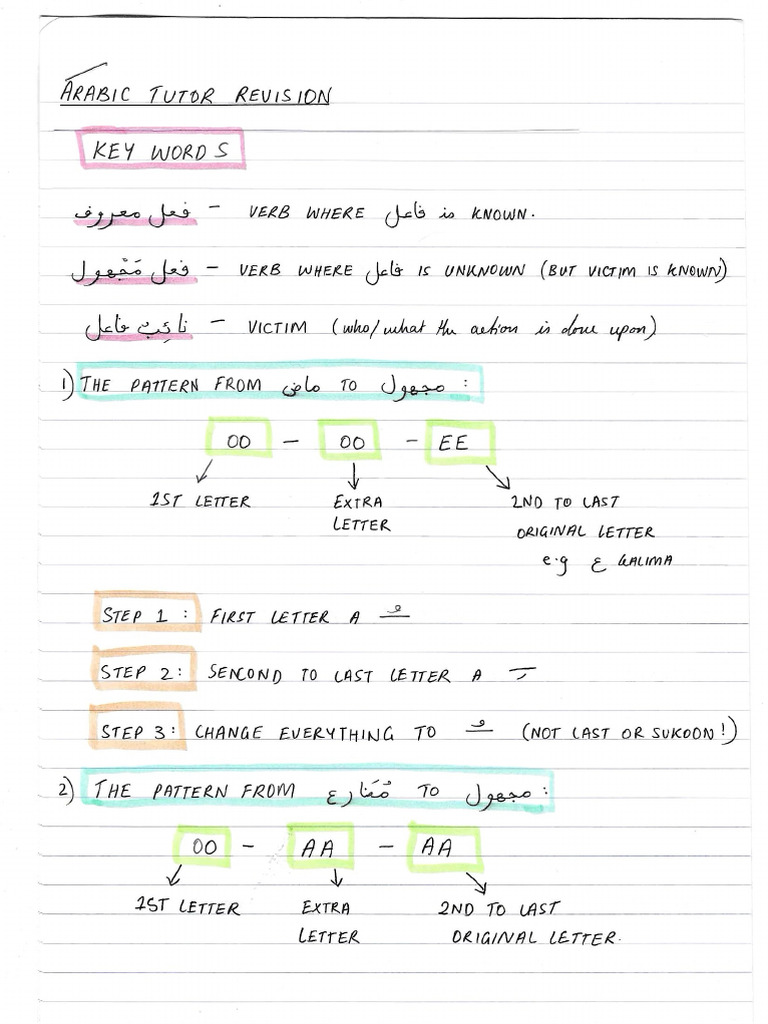 ARABIC TUTOR REVISION
KEY WORDS
فعل معروف - VERB WHERE فاعل is KNOWN.
فعل مَجْهول - VERB WHERE فاعل IS UNKNOWN (BUT VICTIM IS KNOWN)
نائِب فاعل - VICTIM (who/what the action is done upon)
1) THE PATTERN FROM ماضى TO مجهول :
OO - OO - EE
1ST LETTER EXTRA LETTER 2ND TO LAST ORIGINAL LETTER e.g ع KALIMA
STEP 1 : FIRST LETTER A ـُ
STEP 2: SENCOND TO LAST LETTER A ـِ
STEP 3: CHANGE EVERYTHING TO ـُ (NOT LAST OR SUKOON!)
2) THE PATTERN FROM مُضَارع TO مجهول :
OO - AA - AA
1ST LETTER EXTRA LETTER 2ND TO LAST ORIGINAL LETTER.